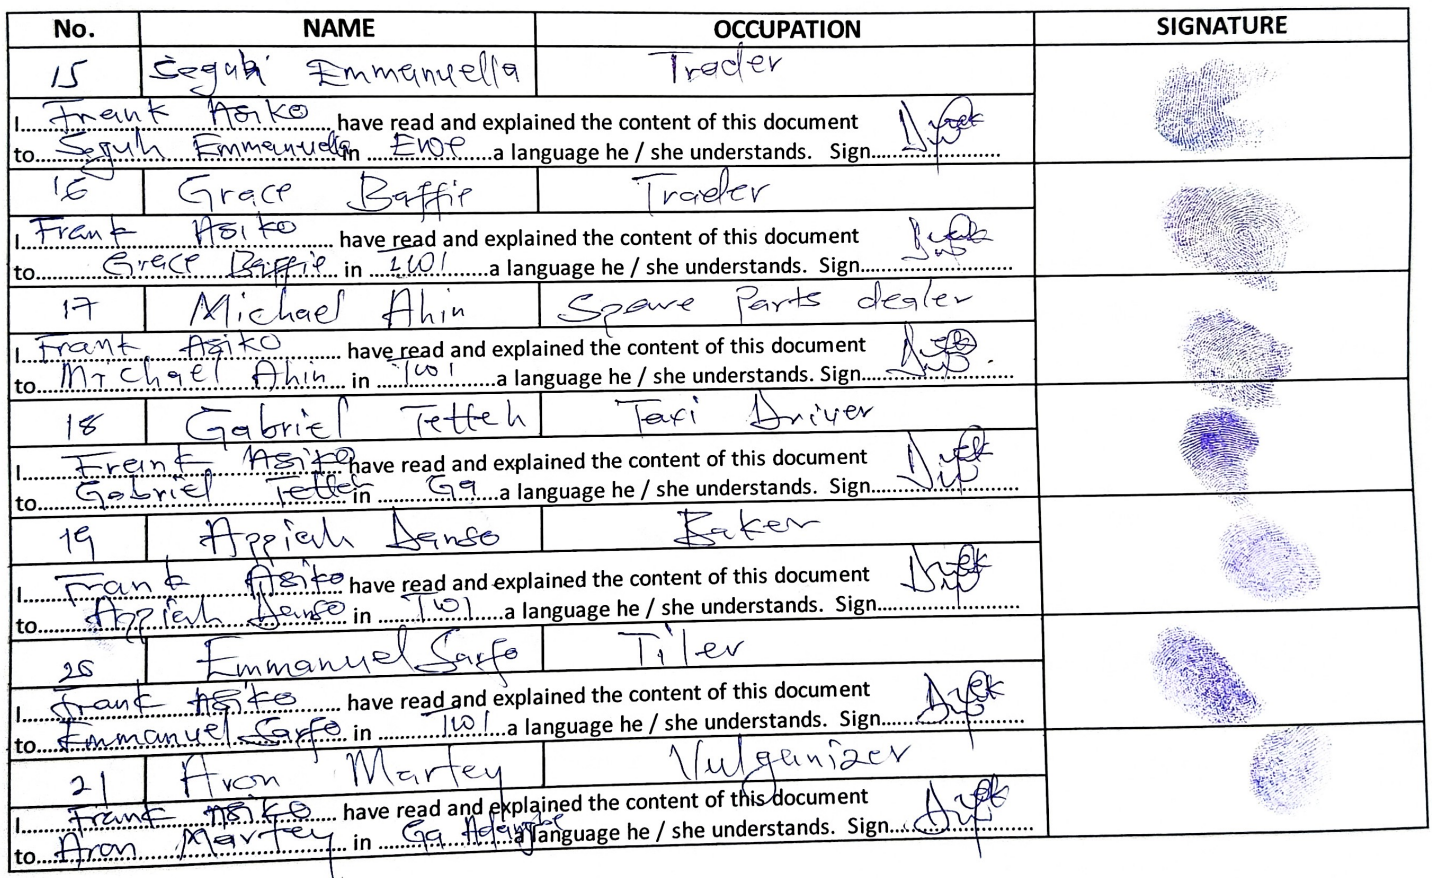 No. NAME OCCUPATION SIGNATURE
15 Seguh Emmanuella Trader
I....Frank Asiko.... have read and explained the content of this document
to....Seguh Emmanuella in ....Ewe....a language he / she understands. Sign....
16 Grace Baffie Trader
I....Frank Asiko.... have read and explained the content of this document
to....Grace Baffie in ....Twi....a language he / she understands. Sign....
17 Michael Ahin Spare Parts dealer
I....Frank Asiko.... have read and explained the content of this document
to....Michael Ahin.... in ....Twi....a language he / she understands. Sign....
18 Gabriel Tetteh Taxi Driver
I....Frank Asiko have read and explained the content of this document
to....Gabriel Tetteh in ....Ga....a language he / she understands. Sign....
19 Appiah Danso Baker
I....Frank Asiko have read and explained the content of this document
to....Appiah Danso in ....Twi....a language he / she understands. Sign....
20 Emmanuel Sarfo Tiler
I....Frank Asiko.... have read and explained the content of this document
to....Emmanuel Sarfo. in ....Twi....a language he / she understands. Sign....
21 Aron Martey Vulganizer
I....Frank Asiko.... have read and explained the content of this document
to....Aron Martey.... in ....Ga Adangbe a language he / she understands. Sign....